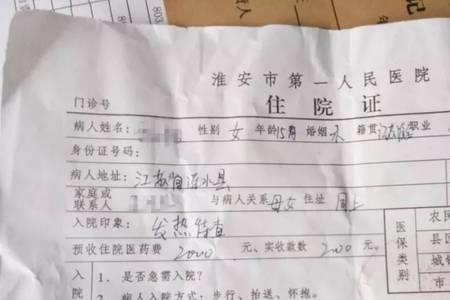 淮安市第一人民医院
住院证
门诊号
病人姓名: 性别 女 年龄 15月 婚姻 未 籍贯 江苏淮 职业
身份证号码:
病人地址: 江苏省涟水县
家庭或
联系人 与病人关系 母女 住址 同上
入院印象: 发热待查
预收住院医药费 2000 元、实收款数 2000 元。
入 1.是否急需入院?
院 2.病人入院方式:步行、抬送、怀抱。
医保类别
农民
县区
城镇
市